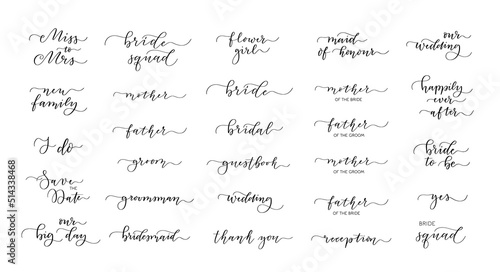 Miss
to
Mrs
new
family
I do
Save
THE
Date
our
big day
bride
squad
mother
father
groom
groomsman
bridesmaid
flower
girl
bride
bridal
guestbook
wedding
thank you
maid
of honour
mother
OF THE BRIDE
father
OF THE GROOM
mother
OF THE GROOM
father
OF THE BRIDE
reception
our
wedding
happily
ever
after
bride
to be
yes
BRIDE
squad
Adobe Stock | #514338468